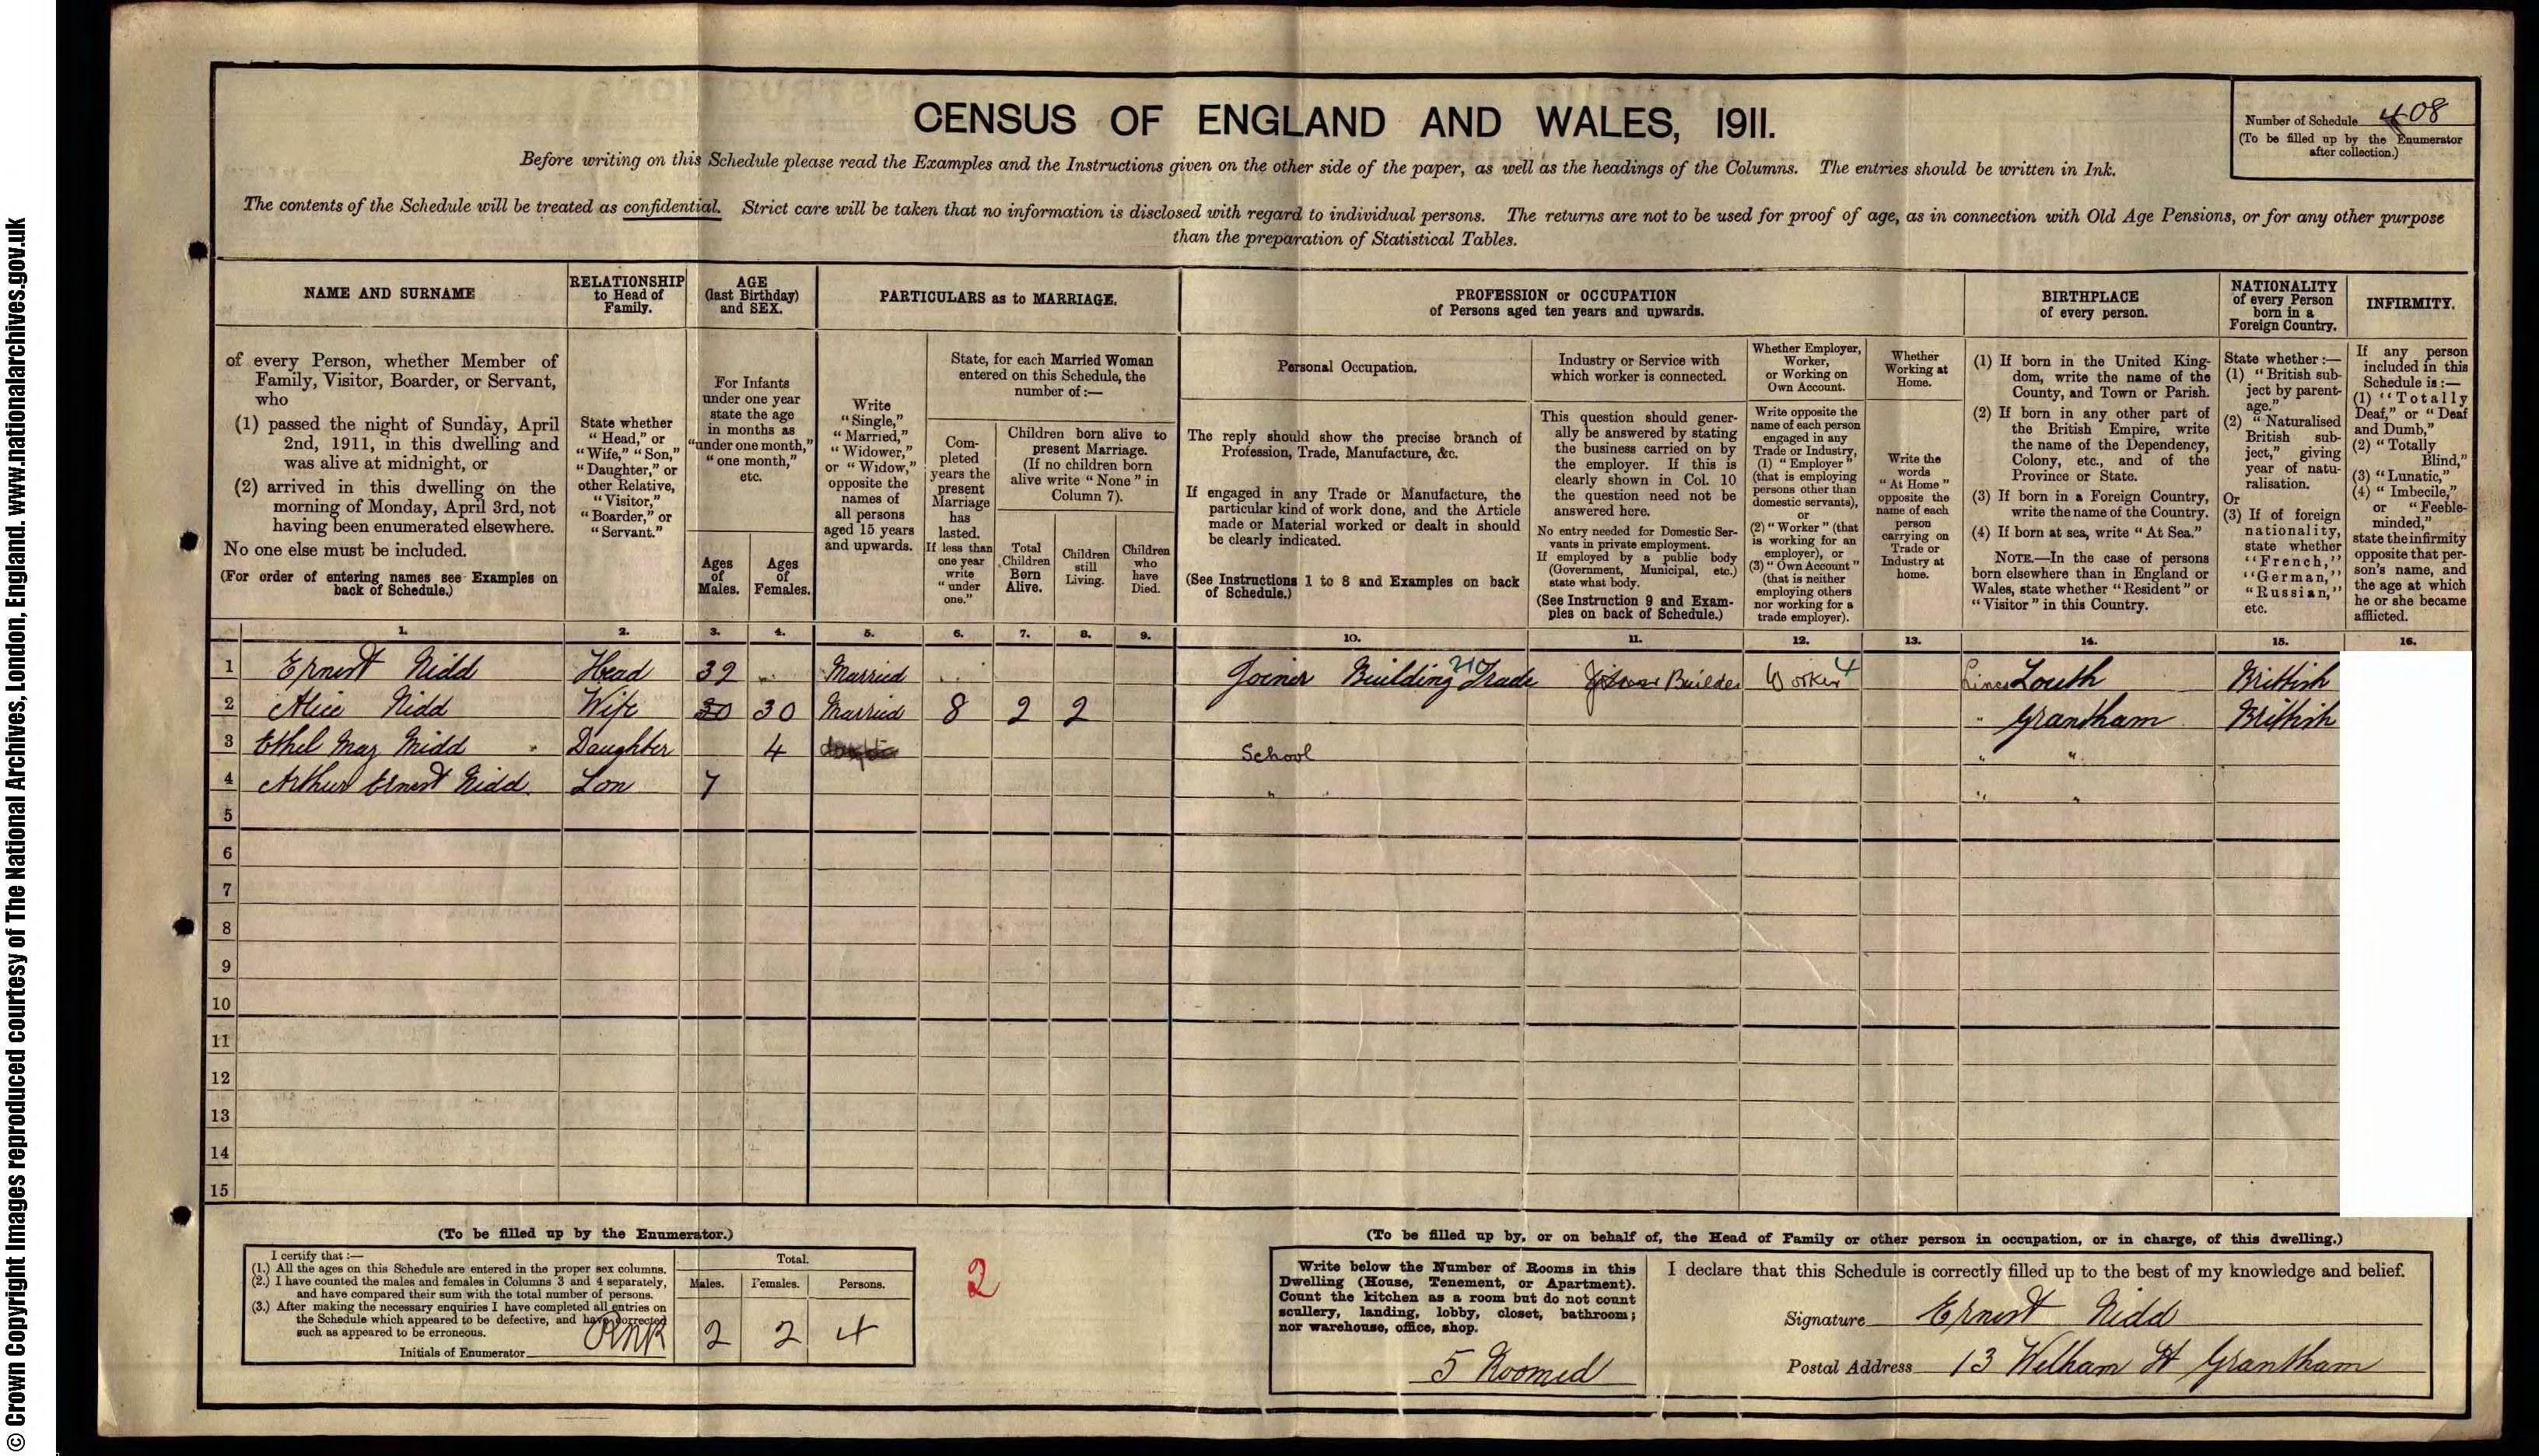 © Crown Copyright Images reproduced courtesy of The National Archives, London, England. www.nationalarchives.gov.uk
CENSUS OF ENGLAND AND WALES, 1911.
Number of Schedule 408
(To be filled up by the Enumerator
after collection.)
Before writing on this Schedule please read the Examples and the Instructions given on the other side of the paper, as well as the headings of the Columns. The entries should be written in Ink.
The contents of the Schedule will be treated as confidential. Strict care will be taken that no information is disclosed with regard to individual persons. The returns are not to be used for proof of age, as in connection with Old Age Pensions, or for any other purpose
than the preparation of Statistical Tables.
NAME AND SURNAME
of every Person, whether Member of
Family, Visitor, Boarder, or Servant,
who
(1) passed the night of Sunday, April
2nd, 1911, in this dwelling and
was alive at midnight, or
(2) arrived in this dwelling on the
morning of Monday, April 3rd, not
having been enumerated elsewhere.
No one else must be included.
(For order of entering names see Examples on
back of Schedule.)
RELATIONSHIP
to Head of
Family.
State whether
"Head," or
"Wife," "Son,"
"Daughter," or
other Relative,
"Visitor,"
"Boarder," or
"Servant."
AGE
(last Birthday)
and SEX.
For Infants
under one year
state the age
in months as
"under one month,"
"one month,"
etc.
Ages
of
Males.
Ages
of
Females.
PARTICULARS as to MARRIAGE.
Write
"Single,"
"Married,"
"Widower,"
or "Widow,"
opposite the
names of
all persons
aged 15 years
and upwards.
State, for each Married Woman
entered on this Schedule, the
number of:—
Com-
pleted
years the
present
Marriage
has
lasted.
If less than
one year
write
"under
one."
Children born alive to
present Marriage.
(If no children born
alive write "None" in
Column 7).
Total
Children
Born
Alive.
Children
still
Living.
Children
who
have
Died.
PROFESSION or OCCUPATION
of Persons aged ten years and upwards.
Personal Occupation.
The reply should show the precise branch of
Profession, Trade, Manufacture, &c.
If engaged in any Trade or Manufacture, the
particular kind of work done, and the Article
made or Material worked or dealt in should
be clearly indicated.
(See Instructions 1 to 8 and Examples on back
of Schedule.)
Industry or Service with
which worker is connected.
This question should gener-
ally be answered by stating
the business carried on by
the employer. If this is
clearly shown in Col. 10
the question need not be
answered here.
No entry needed for Domestic Ser-
vants in private employment.
If employed by a public body
(Government, Municipal, etc.)
state what body.
(See Instruction 9 and Exam-
ples on back of Schedule.)
Whether Employer,
Worker,
or Working on
Own Account.
Write opposite the
name of each person
engaged in any
Trade or Industry,
(1) "Employer"
(that is employing
persons other than
domestic servants),
or
(2) "Worker" (that
is working for an
employer), or
(3) "Own Account"
(that is neither
employing others
nor working for a
trade employer).
Whether
Working at
Home.
Write the
words
"At Home"
opposite the
name of each
person
carrying on
Trade or
Industry at
home.
BIRTHPLACE
of every person.
(1) If born in the United King-
dom, write the name of the
County, and Town or Parish.
(2) If born in any other part of
the British Empire, write
the name of the Dependency,
Colony, etc., and of the
Province or State.
(3) If born in a Foreign Country,
write the name of the Country.
(4) If born at sea, write "At Sea."
NOTE.—In the case of persons
born elsewhere than in England or
Wales, state whether "Resident" or
"Visitor" in this Country.
NATIONALITY
of every Person
born in a
Foreign Country.
State whether:—
(1) "British sub-
ject by parent-
age."
(2) "Naturalised
British sub-
ject," giving
year of natu-
ralisation.
Or
(3) If of foreign
nationality,
state whether
"French,"
"German,"
"Russian,"
etc.
INFIRMITY.
If any person
included in this
Schedule is:—
(1) "Totally
Deaf," or "Deaf
and Dumb,"
(2) "Totally
Blind,"
(3) "Lunatic,"
(4) "Imbecile,"
or "Feeble-
minded,"
state the infirmity
opposite that per-
son's name, and
the age at which
he or she became
afflicted.
1. 2. 3. 4. 5. 6. 7. 8. 9. 10. 11. 12. 13. 14. 15. 16.
1 Ernest Nidd Head 32 Married Joiner Building 210 Trade Builder Worker 4 Lincs Louth Brittish
2 Alice Nidd Wife 30 30 Married 8 2 2 " Grantham Brittish
3 Ethel May Nidd Daughter 4 School " "
4 Arthur Ernest Nidd Son 7 " " " "
5
6
7
8
9
10
11
12
13
14
15
(To be filled up by the Enumerator.)
I certify that:—
(1.) All the ages on this Schedule are entered in the proper sex columns.
(2.) I have counted the males and females in Columns 3 and 4 separately,
and have compared their sum with the total number of persons.
(3.) After making the necessary enquiries I have completed all entries on
the Schedule which appeared to be defective, and have corrected
such as appeared to be erroneous.
Initials of Enumerator
Total.
Males. Females. Persons.
2 2 4
2
(To be filled up by, or on behalf of, the Head of Family or other person in occupation, or in charge, of this dwelling.)
Write below the Number of Rooms in this
Dwelling (House, Tenement, or Apartment).
Count the kitchen as a room but do not count
scullery, landing, lobby, closet, bathroom;
nor warehouse, office, shop.
5 Roomed
I declare that this Schedule is correctly filled up to the best of my knowledge and belief.
Signature Ernest Nidd
Postal Address 13 Welham St Grantham